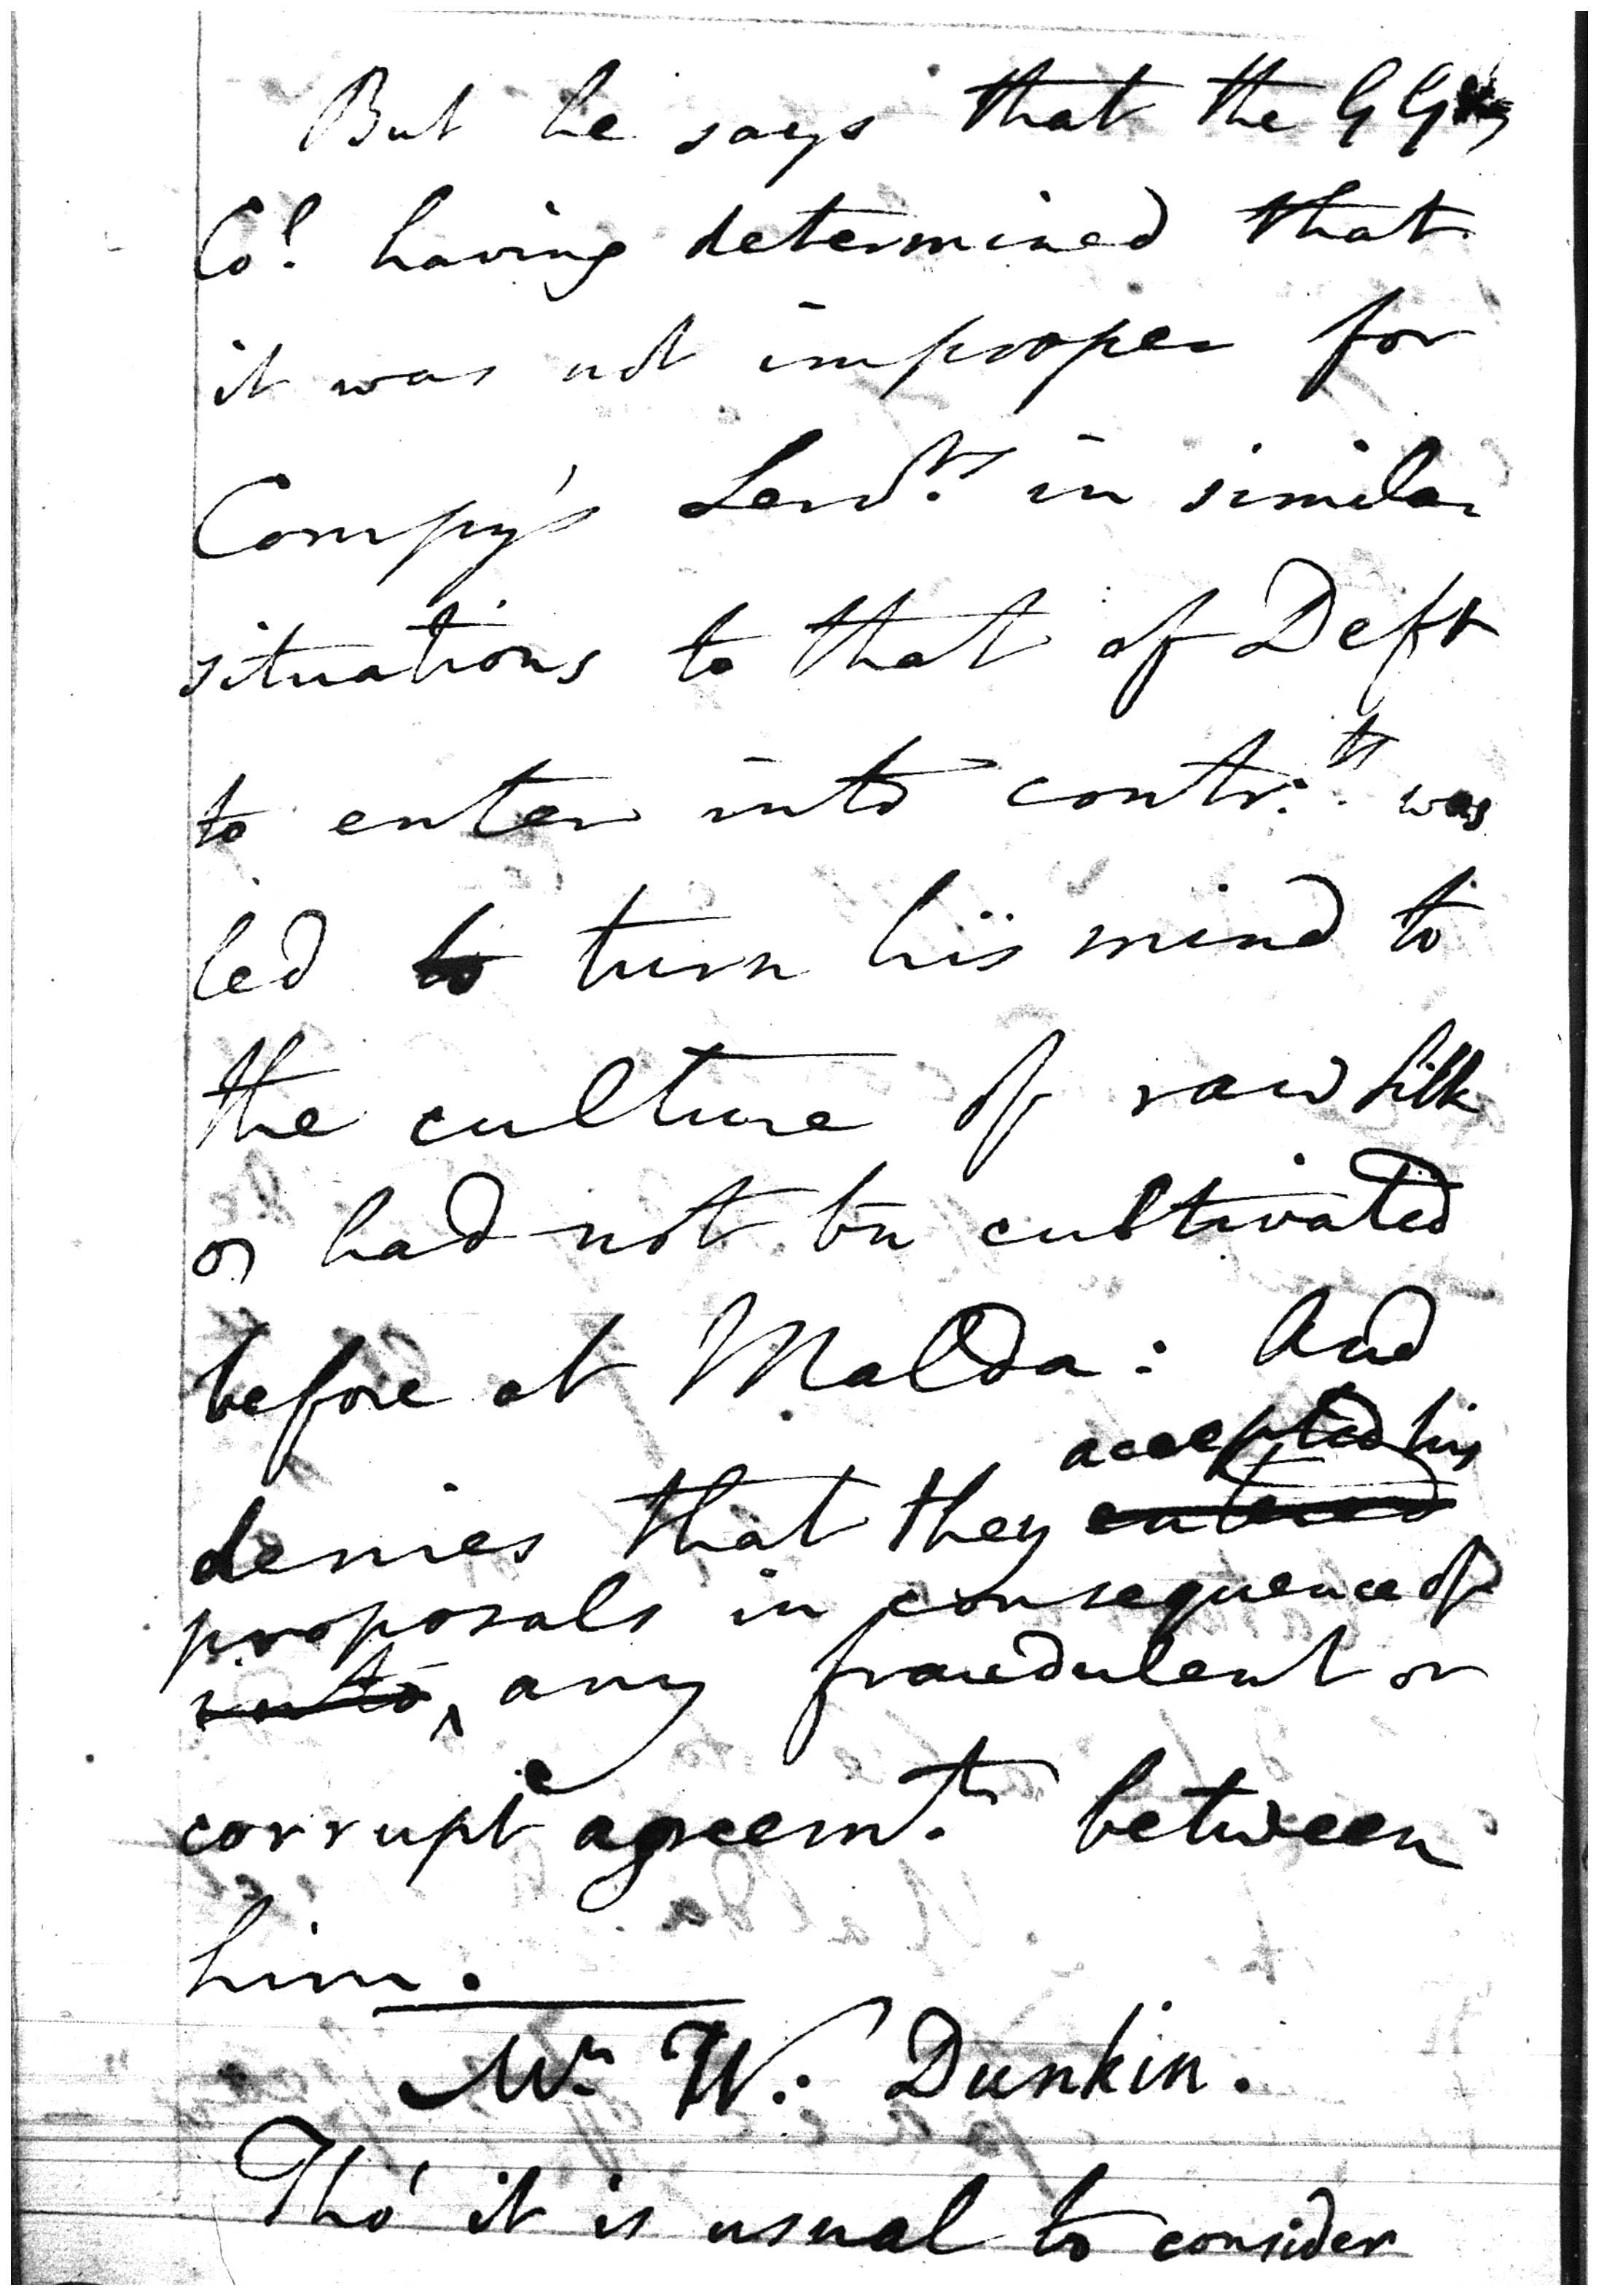 But he says that the GG &
Co!. having determined that
it was not improper for
Compy's Serv.ts in similar
situations to that of Deft
to enter into contr:ts was
led to turn his mind to
the culture of raw silk
had not bn cultivated
before at Malda: And
accepted his
denies that they entered
proposals in consequence of
into ^ any fraudulent or
corrupt agreem.t between
him.
Mr W: Dunkin.
Tho' it is usual to consider